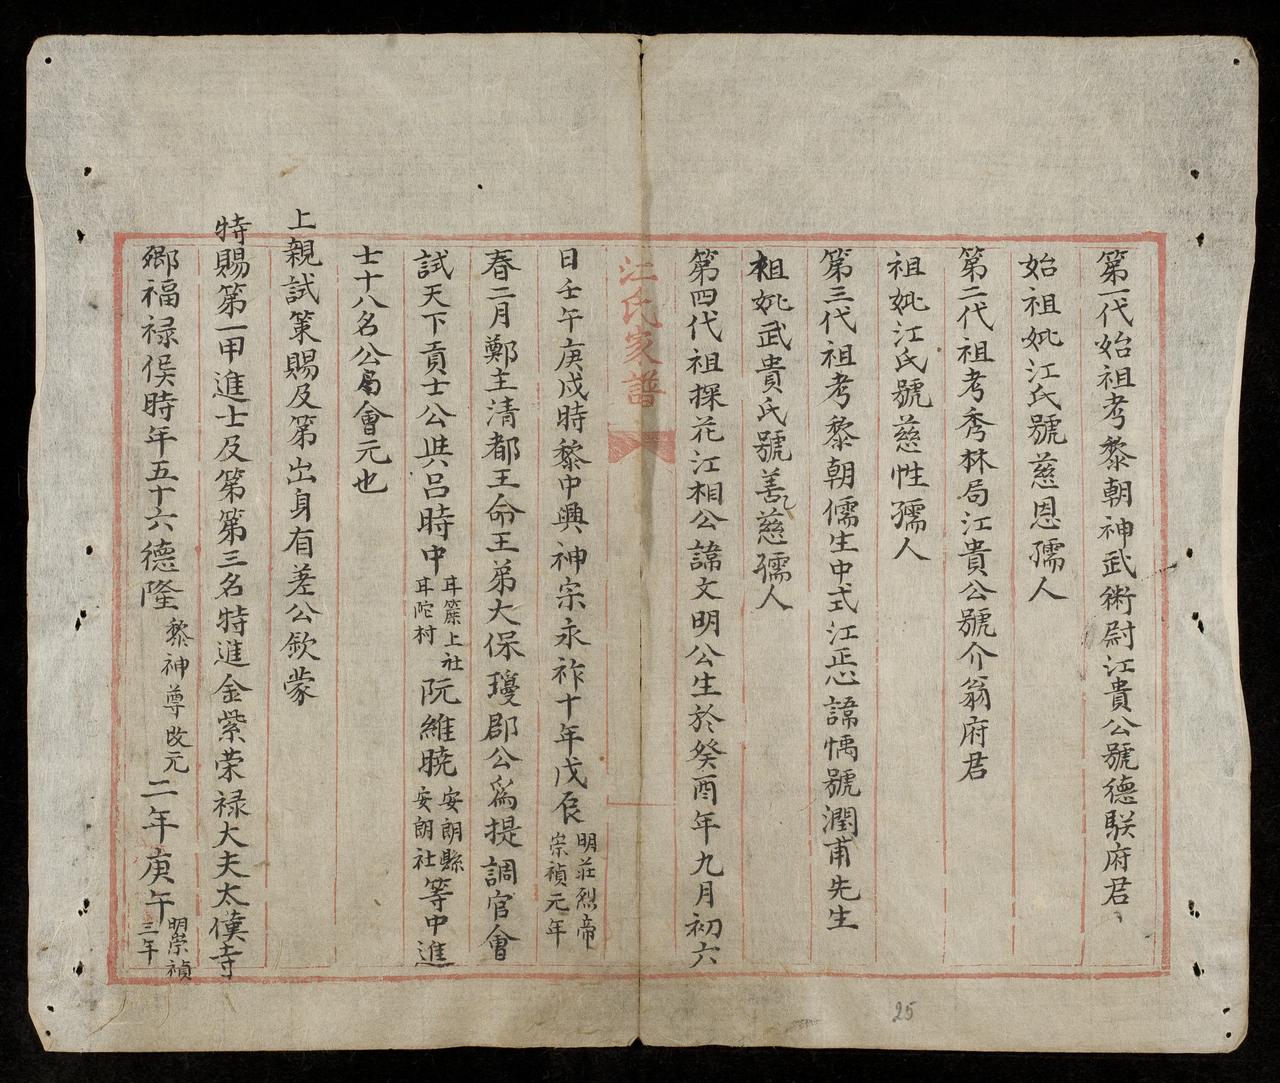 第一代始祖考黎朝神武術尉江貴公號德朕府君
始祖妣江氏號慈恩孺人
第二代祖考秀林局江貴公號介翁府君
祖妣江氏號慈性孺人
第三代祖考黎朝儒生中式江正心諱慲號潤甫先生
祖妣武貴氏號善慈孺人
第四代祖探花江相公諱文明公生於癸酉年九月初六
江氏家譜
日壬午庚戍時黎中興神宗永祚十年戊辰明莊烈帝崇禎元年
春二月鄭主清都王命王弟大保瓊郡公為提調官會
試天下貢士公與呂時中耳簶上社耳陀村阮維曉安朗縣安朗社等中進
士十八名公局會元也
上親試策賜及第出身有差公欽蒙
特賜第一甲進士及第第三名特進金紫荣禄大夫太僕寺
鄉福禄侯時年五十六德隆黎神尊改元二年庚午明崇禎三年
25